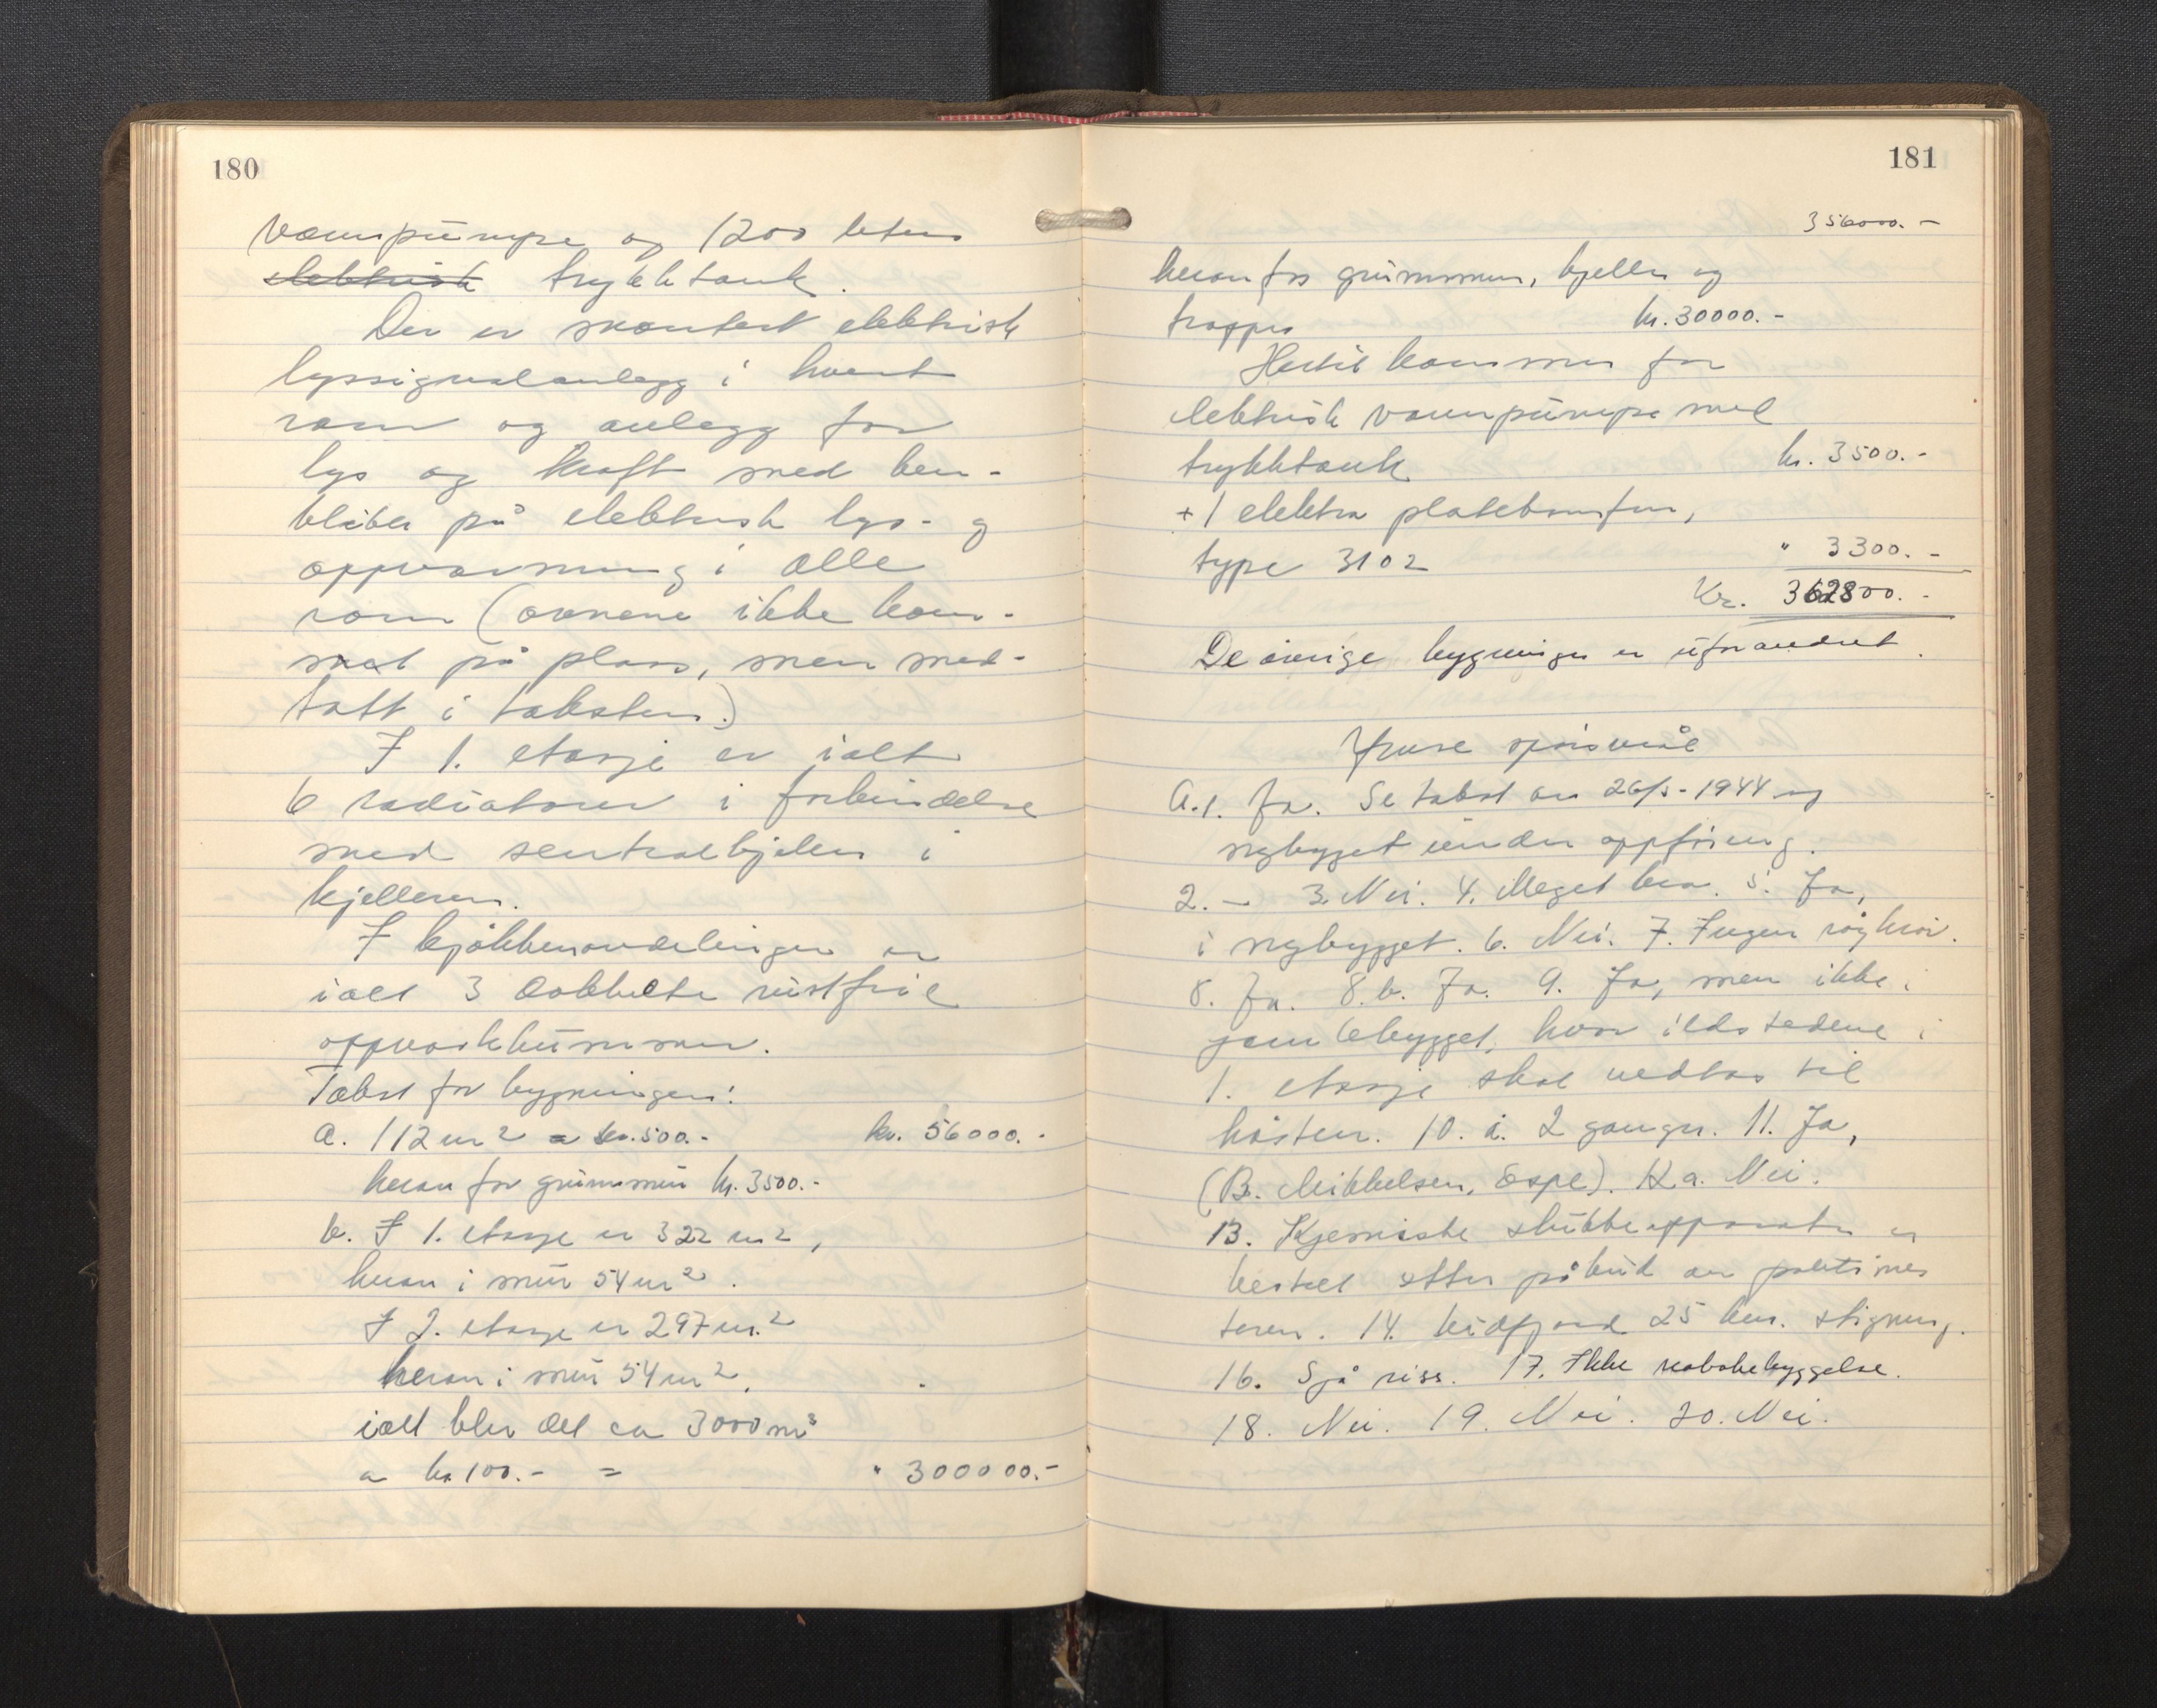 180
vannpumpe og 1200 liters
elektrisk trykktank.
Der er montert elektrisk
lyssignalanlegg i hvert
rom og anlegg for
lys og kraft med
på elektrisk lys- og
oppvarming i alle
rom (ovnene ikke kom-
met på plass, men med-
tatt i taksten.)
I 1. etasje er ialt
6 radiatorer i forbindelse
med sentralkjelen i
kjelleren.
I kjökkenavdelingen er
ialt 3 dobbelte rustfrie
oppvaskkummer.
Takst for bygningen:
a. 112 m² a kr. 500.- kr. 56000.-
herav for grunnmur kr. 3500.-
b. I 1. etasje er 322 m²,
herav i mur 54 m².
I 2. etasje er 297 m.²
herav i mur 54 m².
ialt blir det ca 3000 m³
a kr 100.- = " 300000.-
181
356000.-
herav for grunnmur, kjeller og
trapper kr. 30000.-
Hertil kommer for
elektrisk vannpumpe med
trykktank kr. 3500.-
+ 1 elektra platekomfur,
type 3102 " 3300.-
Kr. 362800.-
De övrige bygninger er uforandret.
spörsmål
A.1. Ja. Se takst av 26/5-1944 og
nybygget under oppföring.
2. - 3. Nei. 4. Meget bra. 5. Ja,
i nybygget. 6. Nei. 7. Ingen
8. Ja. 8.b. Ja. 9. Ja, men ikke i
gamlebygget, hvor ildstedene i
1. etasje skal nedtas til
hösten. 10. i. 2 ganger. 11. Ja,
(B. Mikkelsen, Espe). 12 a. Nei.
13. Kjemiske slukkeapparater er
bestilt etter påbud av politimes
teren. 14. Eidfjord 25 km. stigning.
16. Sjå riss. 17. Ikke nabobebyggelse.
18. Nei. 19. Nei. 20. Nei.